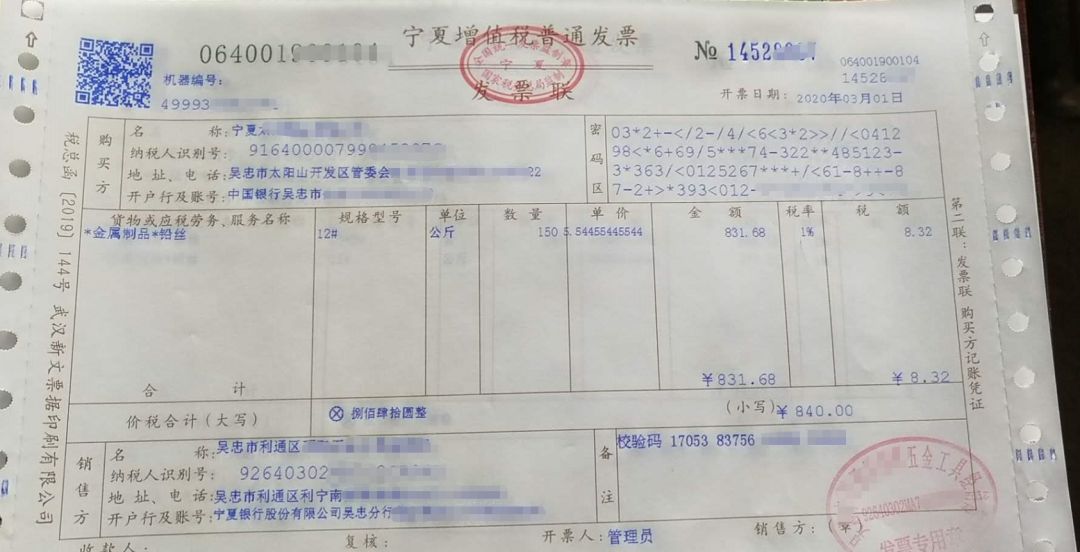 宁夏增值税普通发票
发票联
064001
№ 14528
064001900104
14528
机器编号:
49993
开票日期: 2020年03月01日
全国统一发票监制章
宁夏
国家税务总局监制
购买方
名 称:宁夏
纳税人识别号: 91640000799
地 址、电 话:吴忠市太阳山开发区管委会 22
开户行及账号:中国银行吴忠市
密码区
03*2+-</2-/4/<6<3*2>>//<0412
98<*6+69/5***74-322**485123-
3*363/<0125267***+/<61-8++-8
7-2+>*393<012-
货物或应税劳务、服务名称 规格型号 单位 数 量 单 价 金 额 税率 税 额
*金属制品*铅丝 12# 公斤 150 5.54455445544 831.68 1% 8.32
合 计 ￥831.68 ￥8.32
价税合计(大写) ⊗ 捌佰肆拾圆整 (小写)￥840.00
销售方
名 称:吴忠市利通区
纳税人识别号: 92640302
地 址、电 话:吴忠市利通区利宁南
开户行及账号:宁夏银行股份有限公司吴忠分行
备注
校验码 17053 83756
收款人: 复核: 开票人: 管理员 销售方:(章)
五金工具
92640302MA7
发票专用章
税总函〔2019〕144号 武汉新文票据印刷有限公司
第二联:发票联 购买方记账凭证